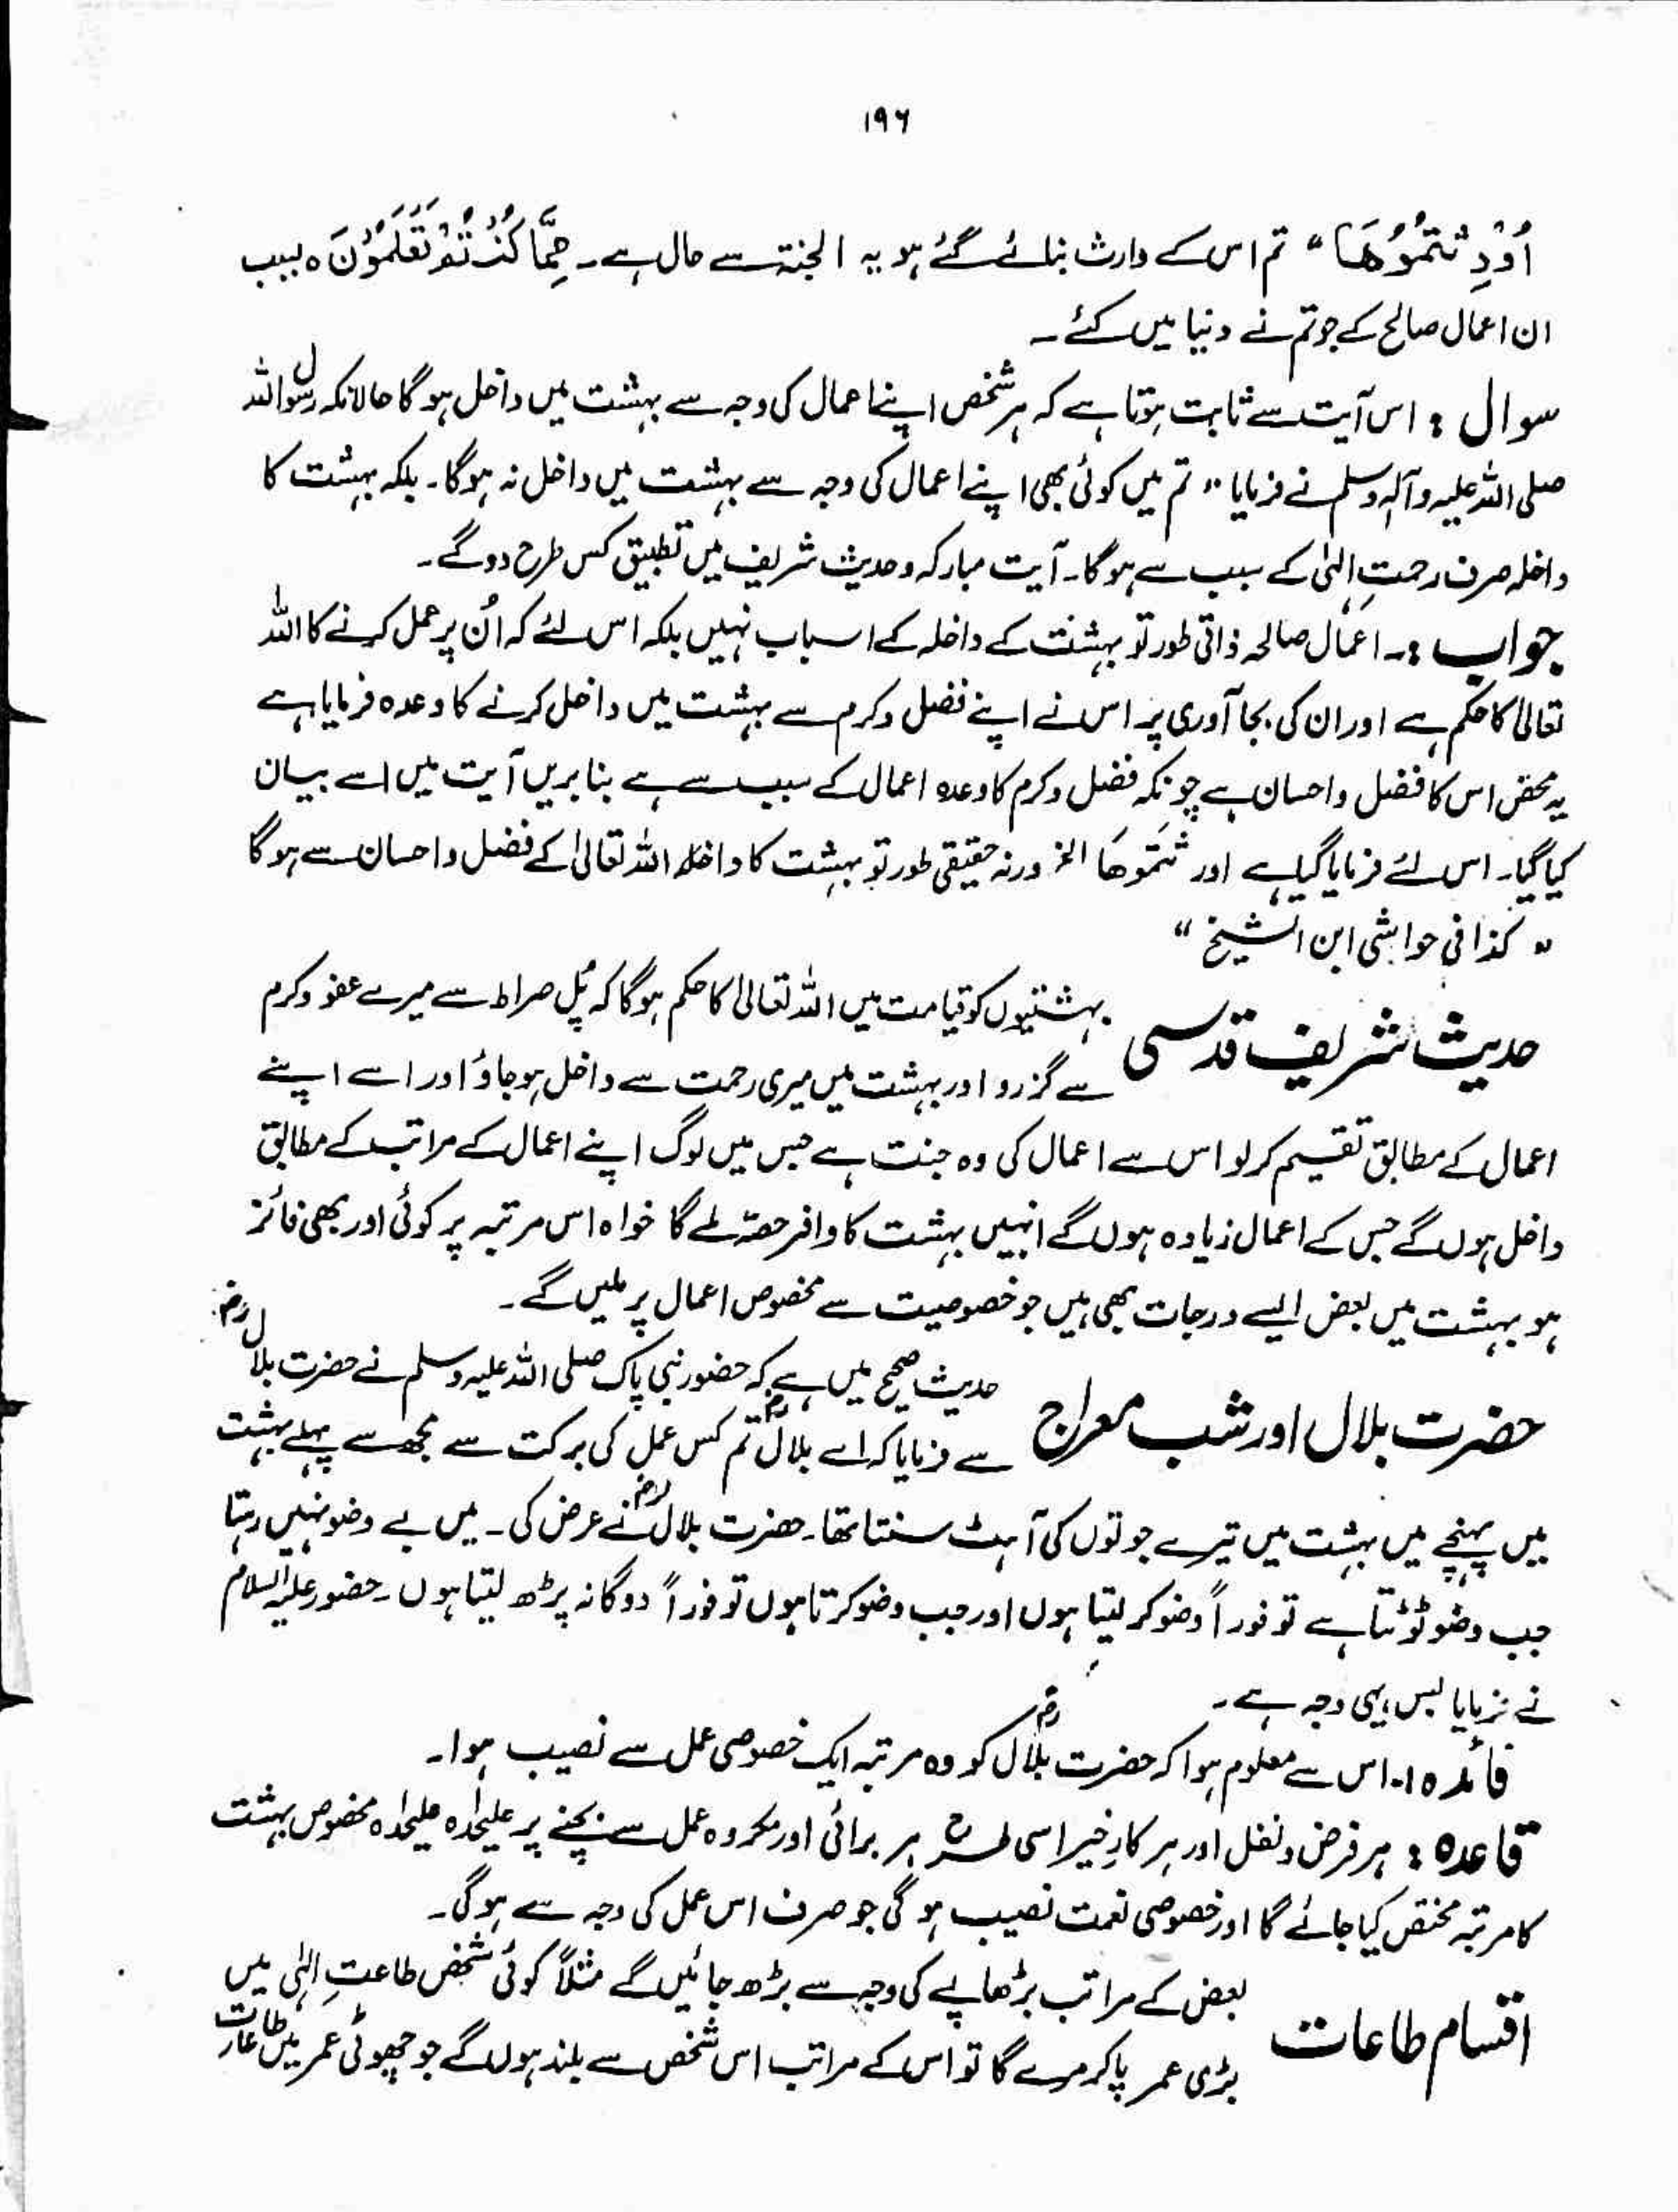 ۱۹۶
اُوْرِثْتُمُوْهَا" تم اس کے وارث بنائے گئے ہو یہ الجنۃ سے حال ہے۔ مِمَّا كُنْتُمْ تَعْلَمُوْنَ ہ بسبب
ان اعمال صالح کے جو تم نے دنیا میں کئے۔
سوال : اس آیت سے ثابت ہوتا ہے کہ ہر شخص اپنے اعمال کی وجہ سے بہشت میں داخل ہوگا حالانکہ رسول اللہ
صلی اللہ علیہ وآلہ وسلم نے فرمایا " تم میں کوئی بھی اپنے اعمال کی وجہ سے بہشت میں داخل نہ ہوگا۔ بلکہ بہشت کا
داخلہ صرف رحمتِ الہٰی کے سبب سے ہوگا۔ آیت مبارکہ وحدیث شریف میں تطبیق کس طرح دوگے۔
جواب :۔ اعمال صالحہ ذاتی طور تو بہشت کے داخلہ کے اسباب نہیں بلکہ اس لئے کہ اُن پر عمل کرنے کا اللہ
تعالیٰ کا حکم ہے اور ان کی بجا آوری پر اس نے اپنے فضل وکرم سے بہشت میں داخل کرنے کا وعدہ فرمایا ہے
یہ محض اس کا فضل واحسان ہے چونکہ فضل وکرم کا وعدہ اعمال کے سبب سے ہے بنا بریں آیت میں اسے بیان
کیا گیا۔ اس لئے فرمایا گیا ہے اور ثتموھا الخ ورنہ حقیقی طور تو بہشت کا داخلہ اللہ تعالیٰ کے فضل واحسان سے ہوگا
" کذا فی حواشی ابن الشیخ "
حدیث شریف قدسی بہشتیوں کو قیامت میں اللہ تعالیٰ کا حکم ہوگا کہ پُل صراط سے میرے عفو وکرم
سے گزرو اور بہشت میں میری رحمت سے داخل ہو جاؤ اور اسے اپنے
اعمال کے مطابق تقسیم کر لو اس سے اعمال کی وہ جنت ہے جس میں لوگ اپنے اعمال کے مراتب کے مطابق
داخل ہوں گے جس کے اعمال زیادہ ہوں گے انہیں بہشت کا وافر حصّہ لے گا خواہ اس مرتبہ پر کوئی اور بھی فائز
ہو بہشت میں بعض ایسے درجات بھی ہیں جو خصوصیت سے مخصوص اعمال پر ملیں گے۔
حضرت بلال اور شب معراج حدیث صحیح میں ہے کہ حضور نبی پاک صلی اللہ علیہ وسلم نے حضرت بلالؓ
سے فرمایا کہ اے بلالؓ تم کس عمل کی برکت سے مجھ سے پہلے بہشت
میں پہنچے میں بہشت میں تیرے جوتوں کی آہٹ سنتا تھا۔ حضرت بلالؓ نے عرض کی۔ میں بے وضو نہیں رہتا
جب وضو ٹوٹتا ہے تو فوراً وضو کر لیتا ہوں اور جب وضو کرتا ہوں تو فوراً دوگانہ پڑھ لیتا ہوں۔ حضور علیہ السلام
نے فرمایا بس یہی وجہ ہے۔
فائدہ ۱۔ اس سے معلوم ہوا کہ حضرت بلالؓ کو وہ مرتبہ ایک خصوصی عمل سے نصیب ہوا۔
قاعدہ : ہر فرض ونفل اور ہر کارِ خیر اسی طرح ہر برائی اور مکروہ عمل سے بچنے پر علیحدہ علیحدہ مخصوص بہشت
کا مرتبہ مختص کیا جائے گا اور خصوصی نعمت نصیب ہو گی جو صرف اس عمل کی وجہ سے ہوگی۔
اقسام طاعات بعض کے مراتب بڑھاپے کی وجہ سے بڑھ جائیں گے مثلاً کوئی شخص طاعتِ الہٰی میں
بڑی عمر پا کر مرے گا تو اس کے مراتب اس شخص سے بلند ہوں گے جو چھوٹی عمر میں